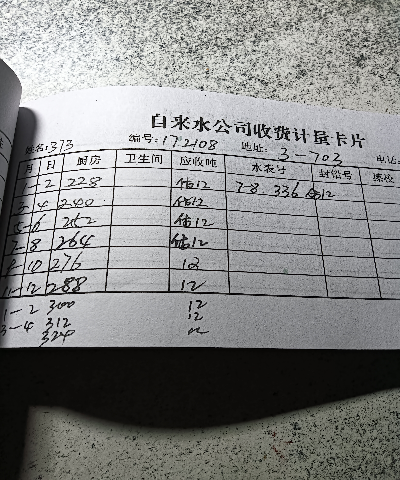 自来水公司收费计量卡片
姓名:373 编号:172108 地址:3-703 电话:
月 日 厨房 卫生间 应收吨 水表号 封铅号
1-2 228 估12 78 336 估12
3-4 240 估12
5-6 252 估12
7-8 264 估12
9-10 276 12
11-12 288 12
1-2 300 12
3-4 312 12
324 12